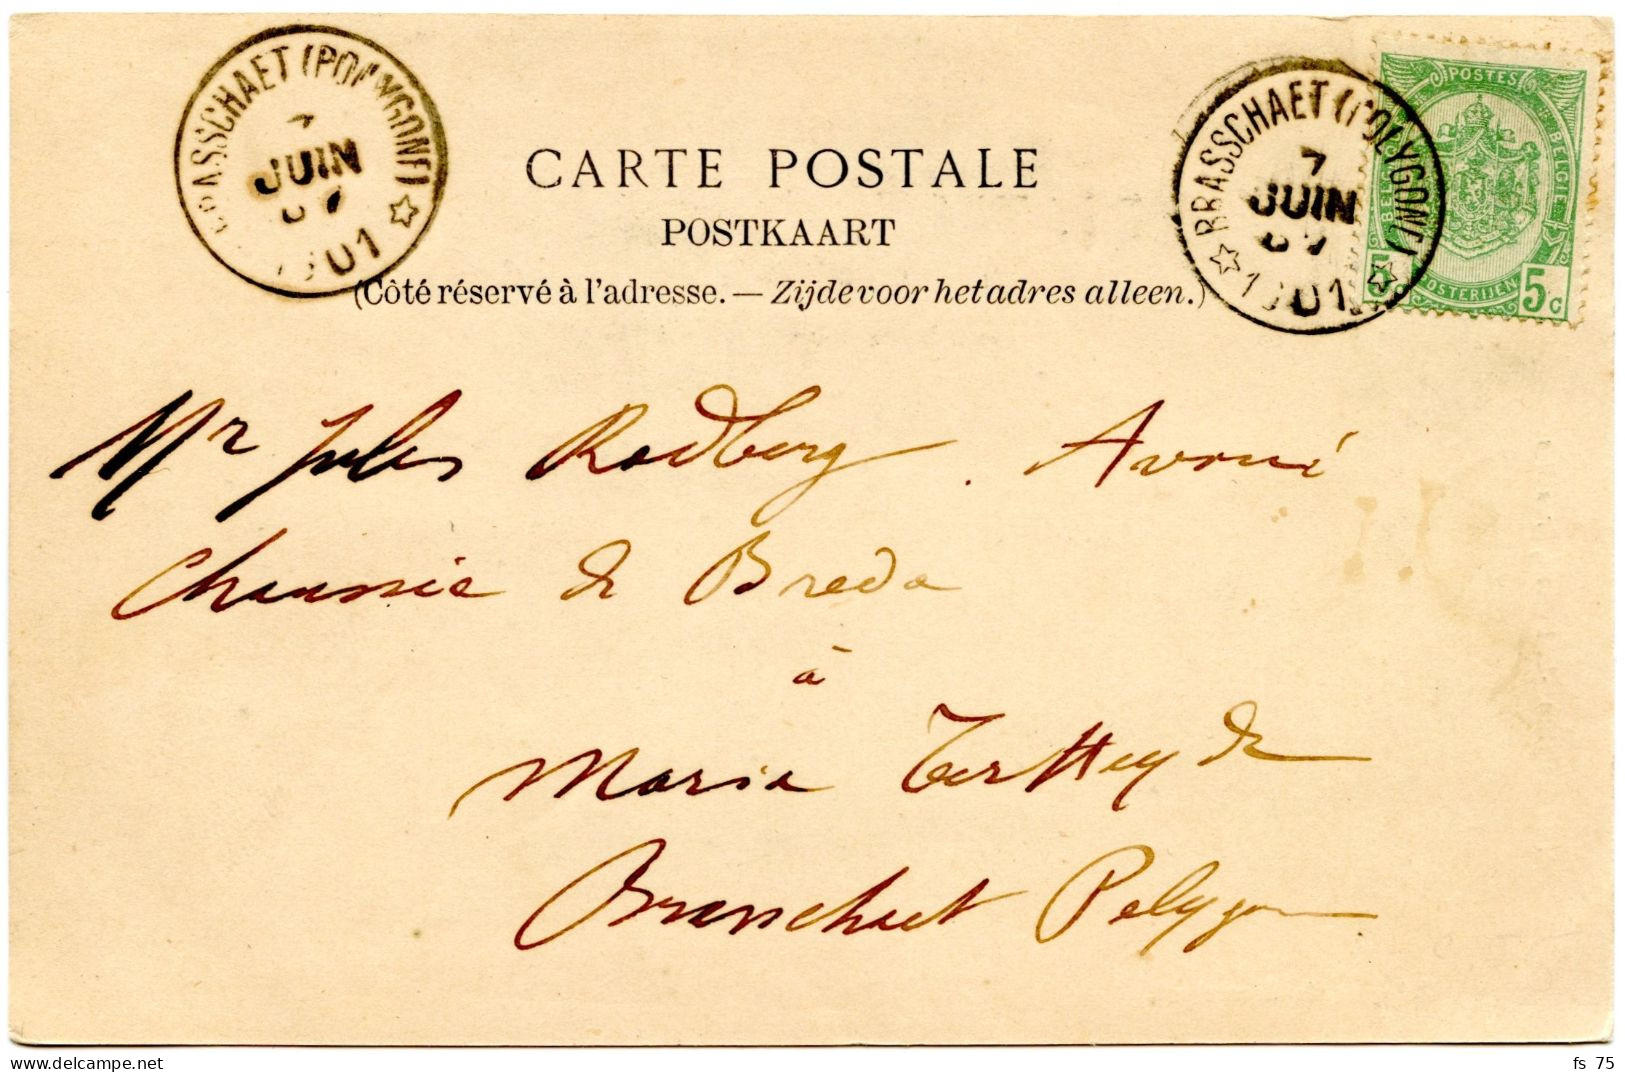 BRASSCHAET (POLYGONE)
7
JUIN
1901
CARTE POSTALE
POSTKAART
(Côté réservé à l'adresse. — Zijde voor het adres alleen.)
BRASSCHAET (POLYGONE)
7
JUIN
1901
POSTES
BELGIQUE BELGIË
POSTERIJEN
5c 5c
Mr Jules Rodberg. Avoué
Chaussée de Breda
à
Maria Ter Heyde
Brasschaet Polygone
delcampe.net
fs_75